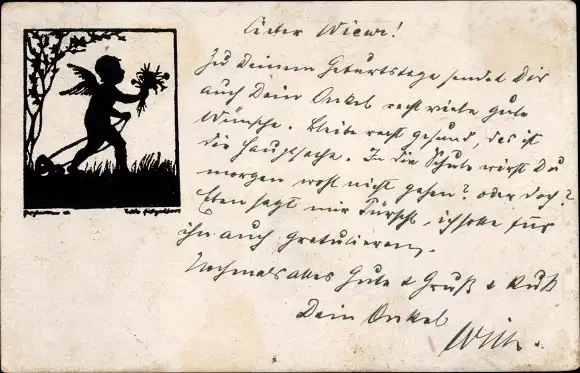 Lieber
Zu Deinem Geburtstage sendet Dir
auch Dein Onkel recht viele gute
Wünsche. Bleibe recht gesund, das ist
die Hauptsache. In die Schule wirst Du
morgen wohl nicht gehen? oder doch?
Eben sagt mir ich solle für
ihn auch gratulieren.
Nochmals alles Gute & Gruß & Kuß
Dein Onkel
Willi.